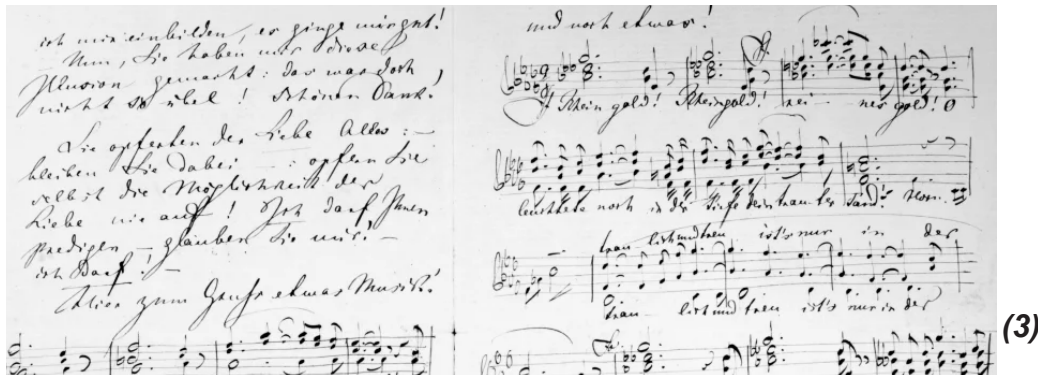 ich mir einbilden, es ginge mirgut!
– Nun, Sie haben mir diese
Illusion gemacht: das war doch
nicht so übel! Schönen Dank!
Sie opferten der Liebe Alles: –
bleiben Sie dabei – : opfern Sie
selbst die Möglichkeit der
Liebe nie auf! Ich darf Ihnen
predigen, – glauben Sie mir! –
ich Darf. –
Hier zum Gruß etwas Musik!
und noch etwas!
Rheingold! Rheingold! rei – nes gold! O
leuchtete noch in der Tiefe dein trau'ter Tand!
trau – lich und treu ist's nur in der
trau – lich und treu ist's nur in der
(3)